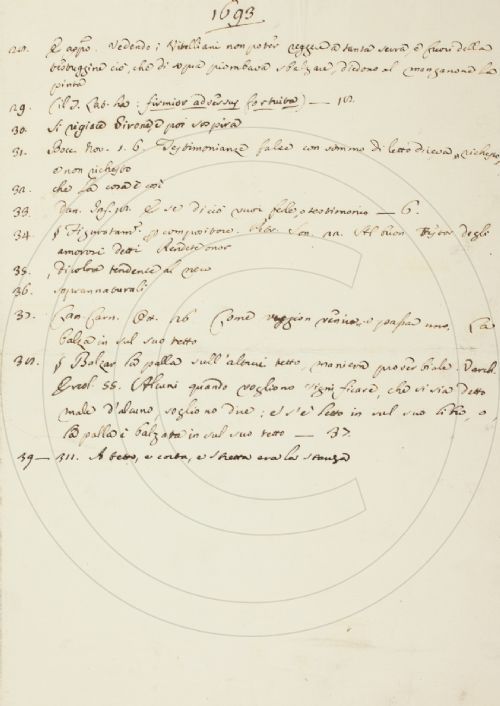 1693
28. E appo. Vedendo i Vitelliani non poter reggere a tanta serra e fuori della
testuggine ciò, che di sopra piombava sbalzare, diedono al manganone la
pinta
29. (il T. Lab. ha: firmior adversus fortuita) — 18.
30. Si rigiace Girone, e poi sospira
31. Bocc. Nov. 1. 6. Testimonianze false con sommo diletto diceva, richesto,
e non richesto
32. che la cosa è così
33. Dan. Inf. 28. E se di ciò vuoi fede, o testimonio — 6.
34. § Figuratam. compositore. Son. 12. Al buon degli
amorosi detti Rendete onor
35. Di colore tendente al nero
36. soprannaturali
37. Cant. Carn. 26 Come veggion venire, e passar uno, La
balza in sul suo tetto
38. § Balzar la palla sull'altrui tetto, maniera proverbiale. Varch.
Ercol. 55. Alcuni quando vogliono significare, che si sia detto
male d'alcuno, sogliono dire: e s'è letto in sul suo libro, o,
la palla è balzata in sul suo tetto — 37.
39 — 311. A tetto, e corta, e stretta era la stanza